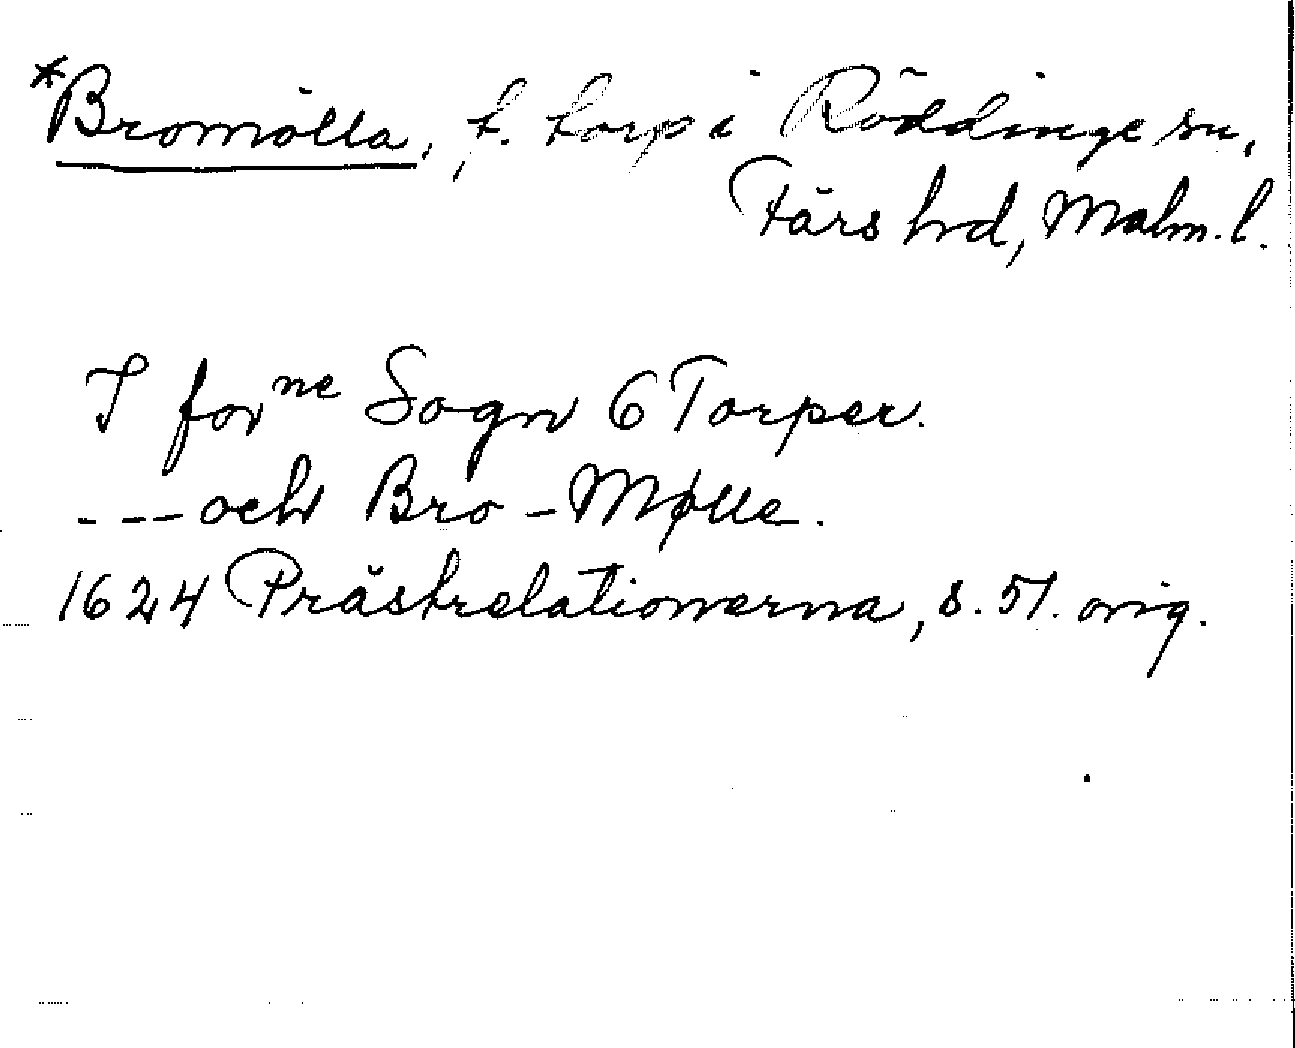 *Bromölla, f. torp i Röddinge sn,
Färs hd, Malm. l.
I forne Sogn 6 Torper.
--- och Bro-Mølle.
1624 Prästrelationerna, s. 51. orig.